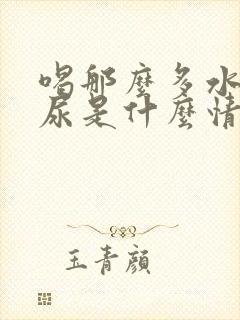 喝那麼多水
尿是什麼情
玉青顏